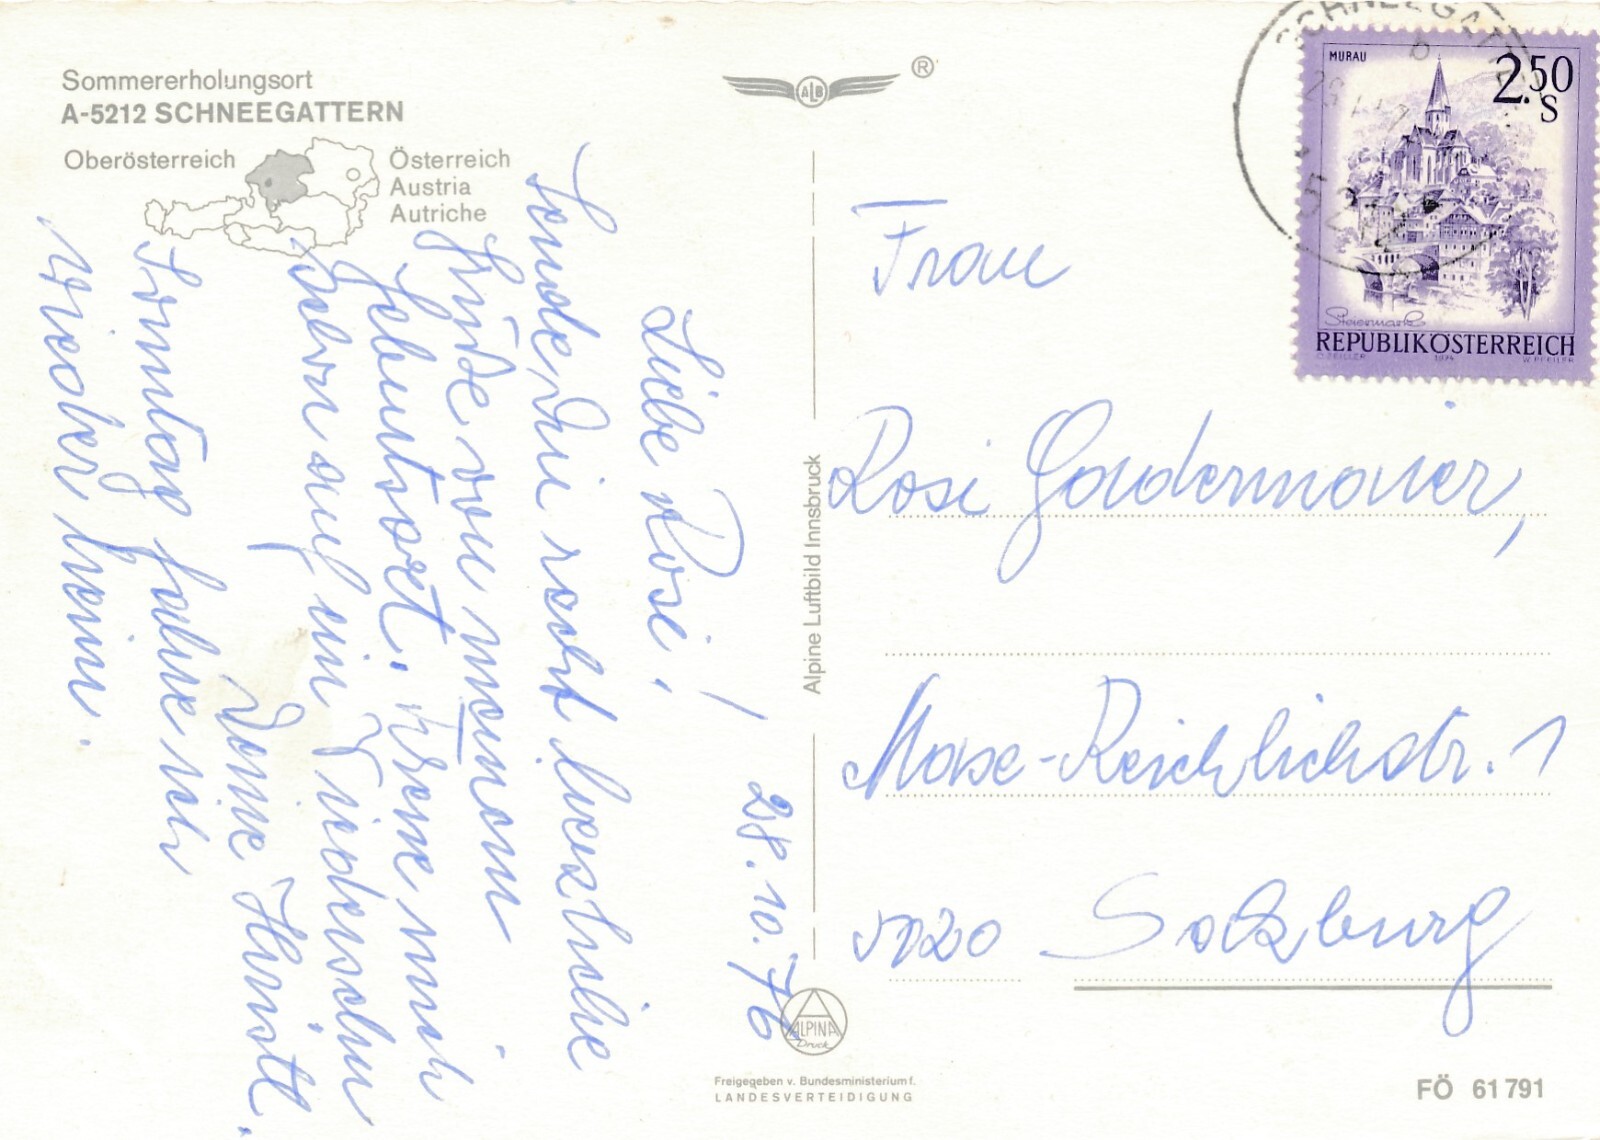 Sommererholungsort
A-5212 SCHNEEGATTERN
Oberösterreich
Österreich
Austria
Autriche
28.10.76
Liebe Rosi!
Sende Dir recht herzliche
Grüße von meinem
Geburtsort. Freue mich
schon auf ein Wiedersehn
Deine Christl.
Sonntag fahre ich
wieder heim.
Alpine Luftbild Innsbruck
ALB
®
SCHNEEGATTERN
b
5212
MURAU
2.50
S
Steiermark
REPUBLIK ÖSTERREICH
1974
Frau
Rosi Gandermaier,
Marx-Reichlichstr. 1
5020 Salzburg
ALPINA
Druck
Freigegeben v. Bundesministerium f.
LANDESVERTEIDIGUNG
FÖ 61 791